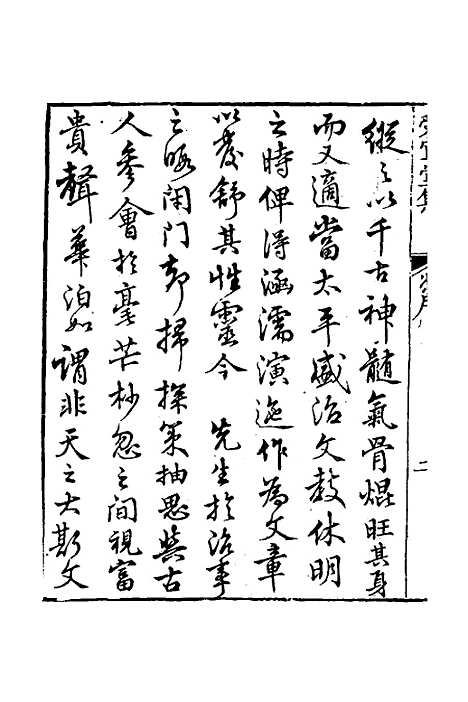 縱之以千古神髓氣骨焜旺其身
而又適當太平盛治文教休明
之時俾得涵濡演迤作為文章
以發舒其性靈今　先生於治事
之暇閉門卻掃探策抽思與古
人參會於毫芒杪忽之間視富
貴聲華泊如謂非天之大斯文
二